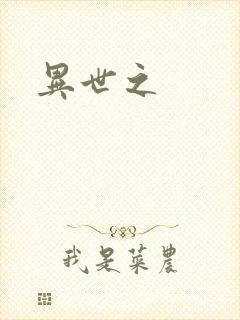 異世之
我是菜農